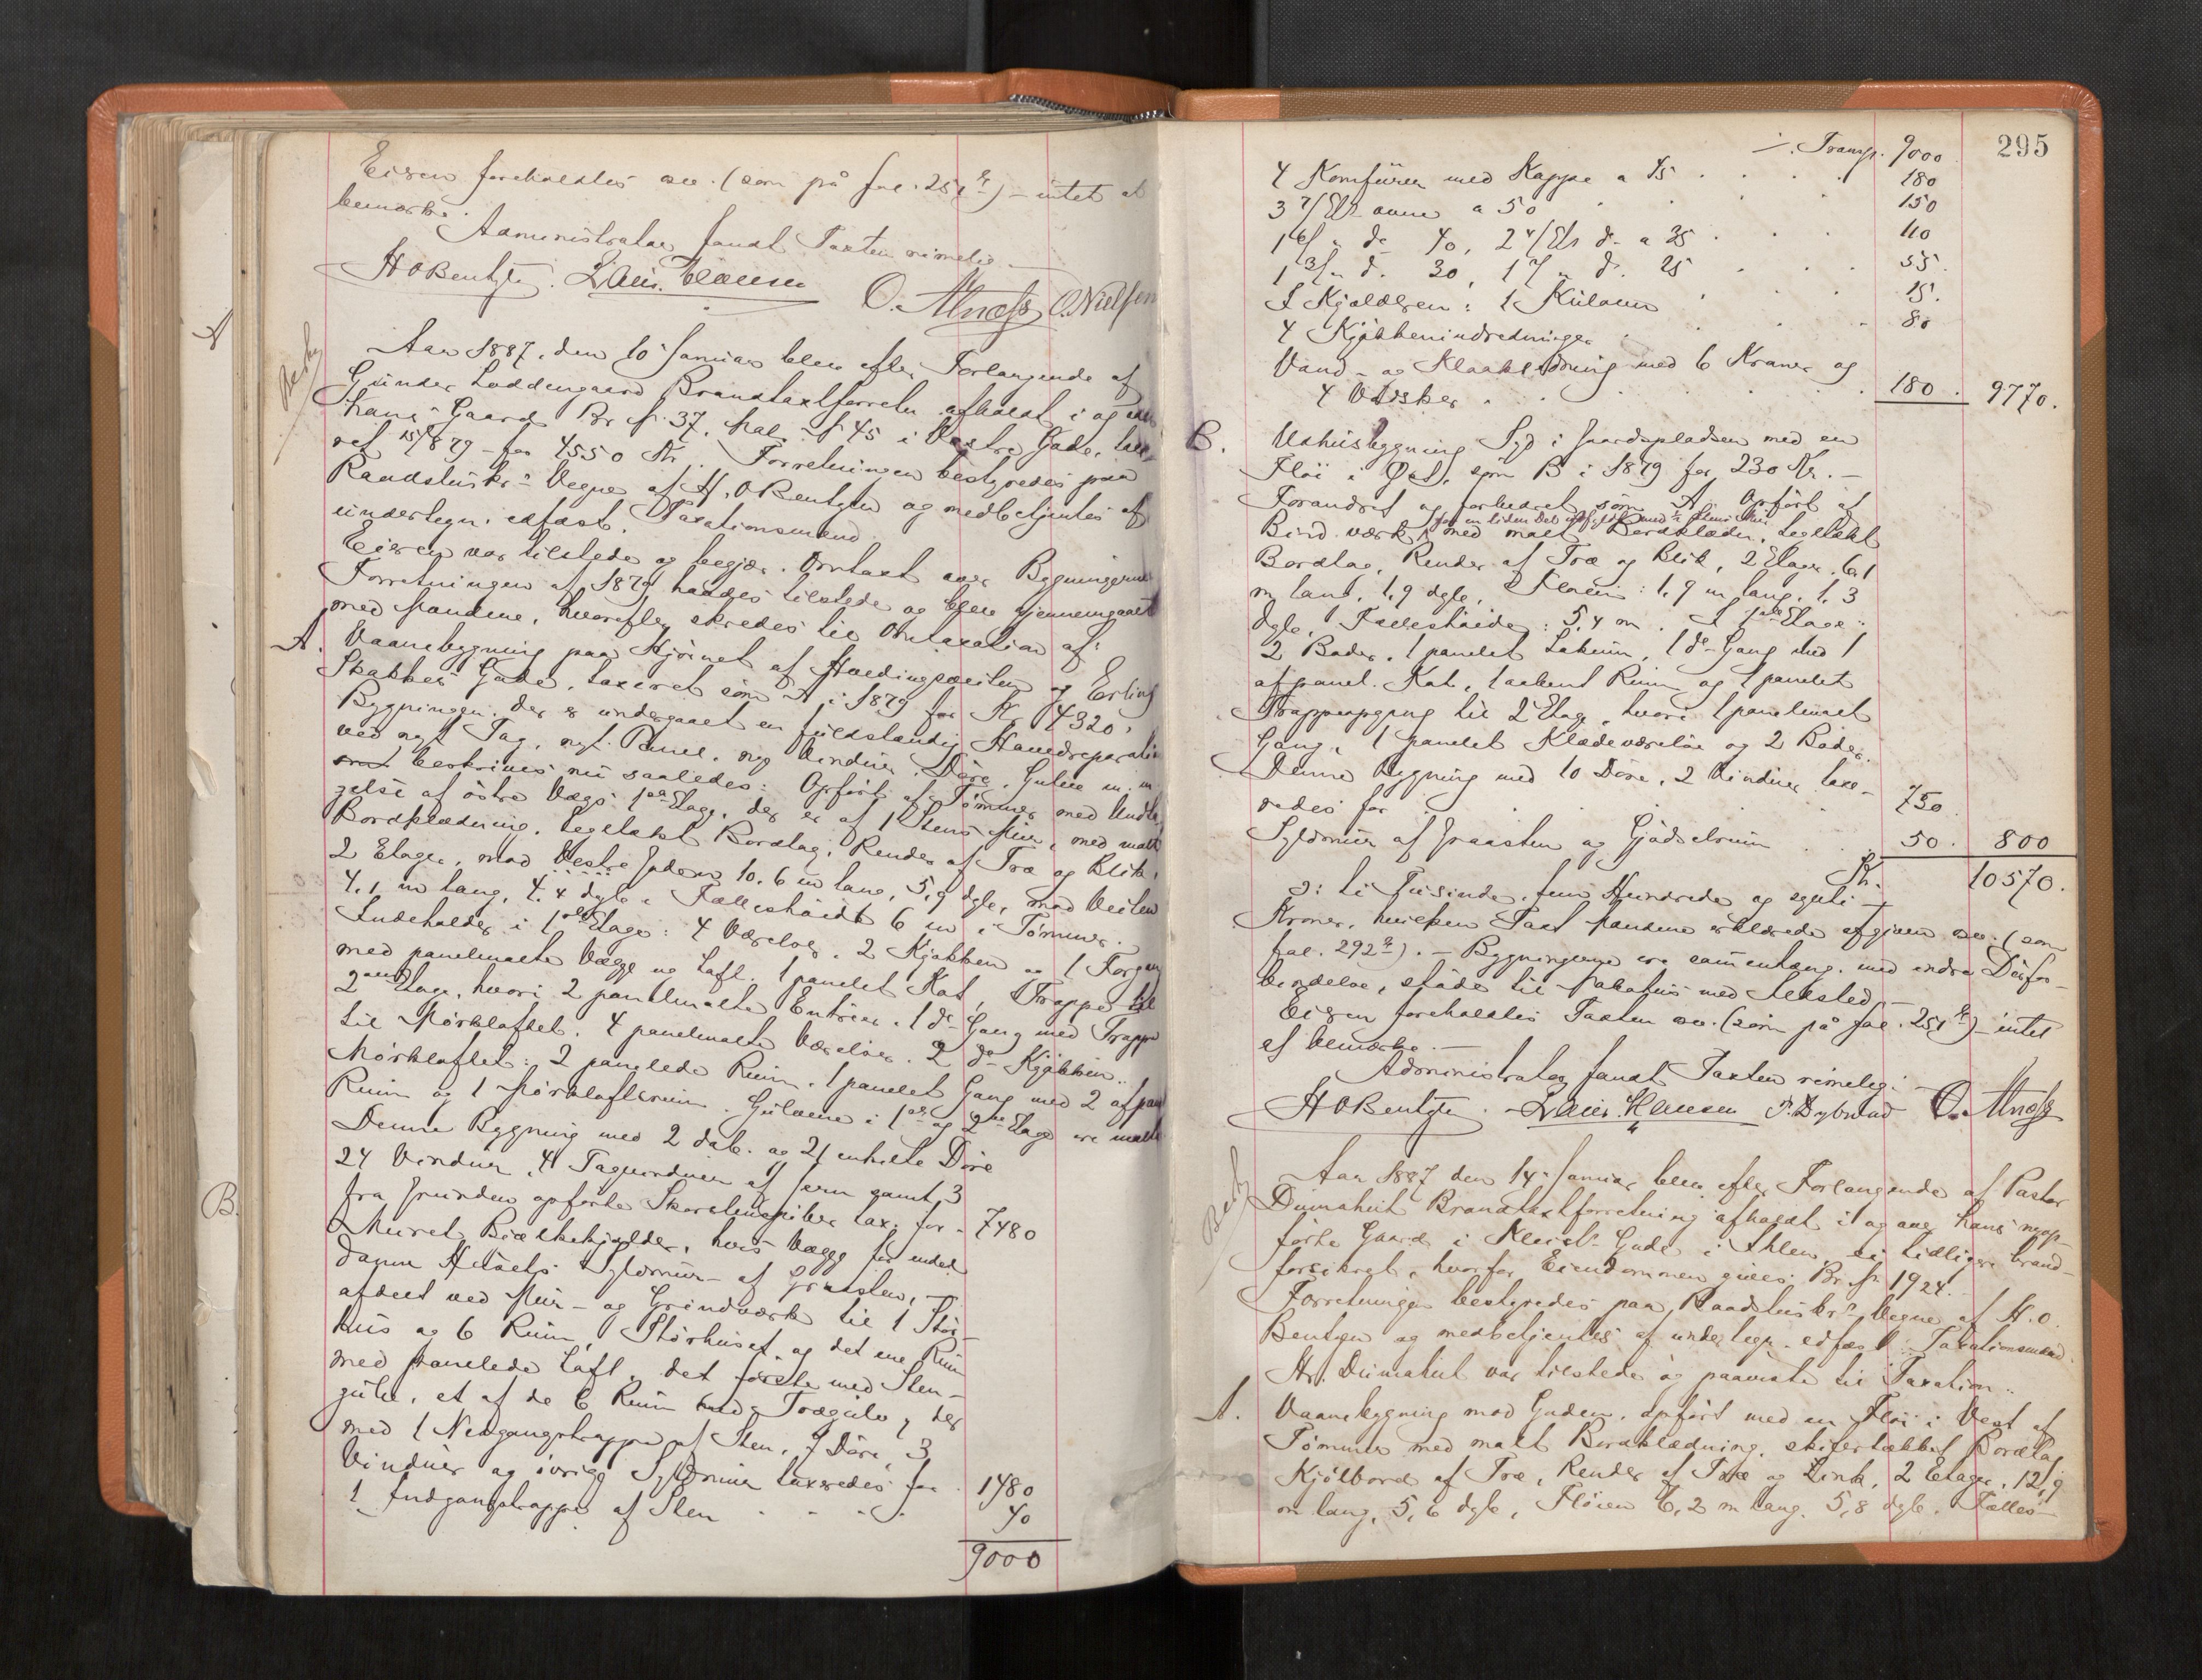 Eieren foreholdtes osv. (som på fol. 251) – intet at
bemærke.
Administrator fandt Taxten rimelig. –
H O Bentzen. Laur. Claussen O. Alnæss O. Nielsen
Aar 1887, den 10 Januar blev efter Forlangende af
Gunder Loddengaard Brandtaxtforretn. afholdt i og over
hans Gaard Br. № 37, Mat. № 45 i Vestre Gade, taxe-
ret 15/8 79 for 4550 Kr. Forretningen bestyredes paa
Raadstuskr. Vegne af H. O Bentzen og medbetjentes af
undertegn. edfæst. Taxationsmænd.
Eieren var tilstede og begjær. Omtaxt over Bygningerne
Forretningen af 1879 havdes tilstede og blev gjennemgaaet
med Mændene, hvorefter skredes til Omtaxation af:
A. Vaanebygning paa Hjørnet af og Erling
Skakkes Gade, taxeret som A i 1879 for Kr. 4320.
Bygningen, der er undergaaet en fuldstændig Hovedreparation
ved nyt Tag, nyt Panel, nye Vinduer, Døre, Gulve m. m.
beskrives nu saaledes: Opført af Tømmer med Undta-
gelse af østre Væg i 1ste Etage, der er af 1 Stens Mur, med malt
Bordklædning, teglstækt Bordtag, Render af Træ og Blik,
2 Etager, mod Vestre Gaden 10.6 m lang, 5,9 dyb, mod Veiten
4.1 m lang, 4.4 dyb. Fælleshøide 6 m i Tømmer.
Indeholder i 1ste Etage: 4 Værelser, 2 Kjøkken og 1 Forgang
med panelmalte Vægge og Loft. 1 panelet Kot, Trappe til
2den Etage, hvori 2 panelmalte Entreer, 1 do Gang med Trappe
til Mørkloftet. 4 panelmalte Værelser. 2 do Kjøkken.
Mørkloftet: 2 panelede Rum, 1 panelet Gang med 2 afpan.
Rum og 1 Mørkloftsrum. Gulvene i 1ste og 2den Etage ere malte
Denne Bygning med 2 dob. og 21 enkelte Døre
24 Vinduer, 4 Tagvinduer af Jern samt 3
fra Grunden opførte Skorstenspiber tax. for 7480
Muret Bjælkekjelder, hvis Vægge for endel
danne Husets Syldmur af Graasten,
afdelt ved Mur- og Grindværk til 1 Skor-
hus og 6 Rum, Storhuset og det ene Rum
med panelede Loft, det første med Sten-
gulv, et af de 6 Rum med Trægulv, der
med 1 Nedgangstrappe af Sten, 7 Døre, 3
Vinduer og øvrige Syldmur taxeredes for 1480
1 Indgangstrappe af Sten 40
9000
295
÷ Transp. 9000
4 Komfurer med Kappe a 45 180
3 7/Ets ovne a 50 150
1 6/" do 40, 2 4/Ets do a 35 110
1 3/" do 30, 1 2/" do 25 55.
I Kjælderen: 1 Kulovn 15.
4 Kjøkkenindredninger 80
Vand- og Kloakledning med 6 Kraner og
4 Vadsker 180. 9770.
B. Udhusbygning Syd i Gaardspladsen med en
Fløi i Øst, som B i 1879 for 230 Kr. –
Forandret og forbedret som A. Opført af
Bindværk med malt Bordklædn., teglstækt
Bordtag, Render af Træ og Blik, 2 Etager. 6.1
m lang, 1,9 dyb, Fløien: 1,9 m lang, 1.3
dyb, Fælleshøide: 5,4 m. I 1ste Etage:
2 Boder, 1 panelet Lokum, 1 do Gang med 1
afpanel. Kot, 1 aabent Rum og 1 panelet
Trappeopgang til 2den Etage, hvori 1 panelmalt
Gang, 1 panelet Klædeværelse og 2 Boder.
Denne Bygning med 10 Døre, 2 Vinduer taxe-
redes for 750
Syldmur af Graasten og Gjødselrum 50. 800
Kr. 10570.
ɔ: ti Tusinde, fem Hundrede og sytti
Kroner, hvilken Taxt Mændene erklærede afgiven osv. (som
fol. 292). – Bygningerne ere sammenhæng. med indre Dørfor-
bindelse, støder til Nabohus med Ildsted. –
Eieren foreholdtes Taxten osv. (som på fol. 251) – intet
at bemærke. –
Administrator fandt Taxten rimelig. –
H O Bentzen. Laur. Claussen O. Alnæss
Aar 1887 den 14. Januar blev efter Forlangende af Pastor
Dumahut Brandtaxtforretning afholdt i og over hans nyop-
førte Gaard i Gade i Ihlen, ei tidligere brand-
forsikret, hvorfor Eiendommen gives Br. № 1924.
Forretningen bestyredes paa Raadstuskr. Vegne af H. O.
Bentzen og medbetjentes af undertegn. edfæst. Taxationsmænd.
Hr. Dumahut var tilstede og paaviste til Taxation:
A. Vaanebygning mod Gaden, opført med en Fløi i Vest af
Tømmer med malt Bordklædning, skifertækket Bordtag
Kjølbord af Træ, Render af Træ og Zink, 2 Etager, 12,9
m lang, 5,6 dyb, Fløien 6,2 m lang, 5,8 dyb. Fælles-